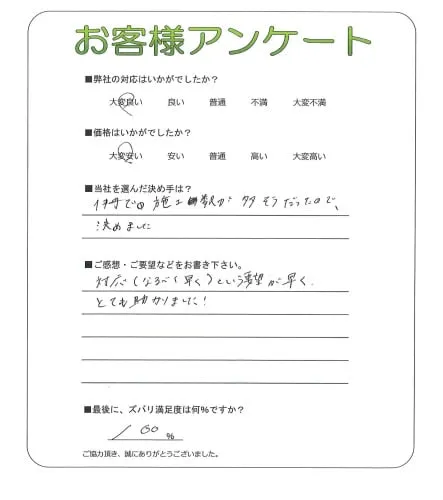 お客様アンケート
■弊社の対応はいかがでしたか?
大変良い 良い 普通 不満 大変不満
■価格はいかがでしたか?
大変安い 安い 普通 高い 大変高い
■当社を選んだ決め手は?
伊丹での施工数が多そうだったので、
決めました
■ご感想・ご要望などをお書き下さい。
対応(なるべく早く)という要望が早く、
とても助かりました!
■最後に、ズバリ満足度は何%ですか?
100%
ご協力頂き、誠にありがとうございました。